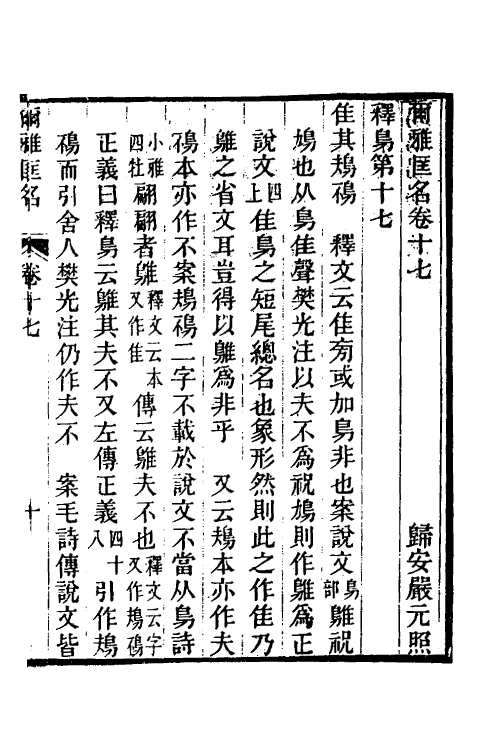 爾雅匡名卷十七　歸安嚴元照
釋鳥第十七
隹其鳺鴀　釋文云隹旁或加鳥非也案說文鳥部鵻祝
鳩也从鳥隹聲樊光注以夫不爲祝鳩則作鵻爲正
說文四上隹鳥之短尾總名也象形然則此之作隹乃
鵻之省文耳豈得以鵻爲非乎　又云鳺本亦作夫
鴀本亦作不案鳺鴀二字不載於說文不當从鳥詩
小雅四牡翩翩者鵻釋文云本又作隹傳云鵻夫不也釋文云字又作鳺鴀
正義曰釋鳥云鵻其夫不又左傳正義四十八引作鳺
鴀而引舍人樊光注仍作夫不　案毛詩傳說文皆
爾雅匡名　卷十七　十